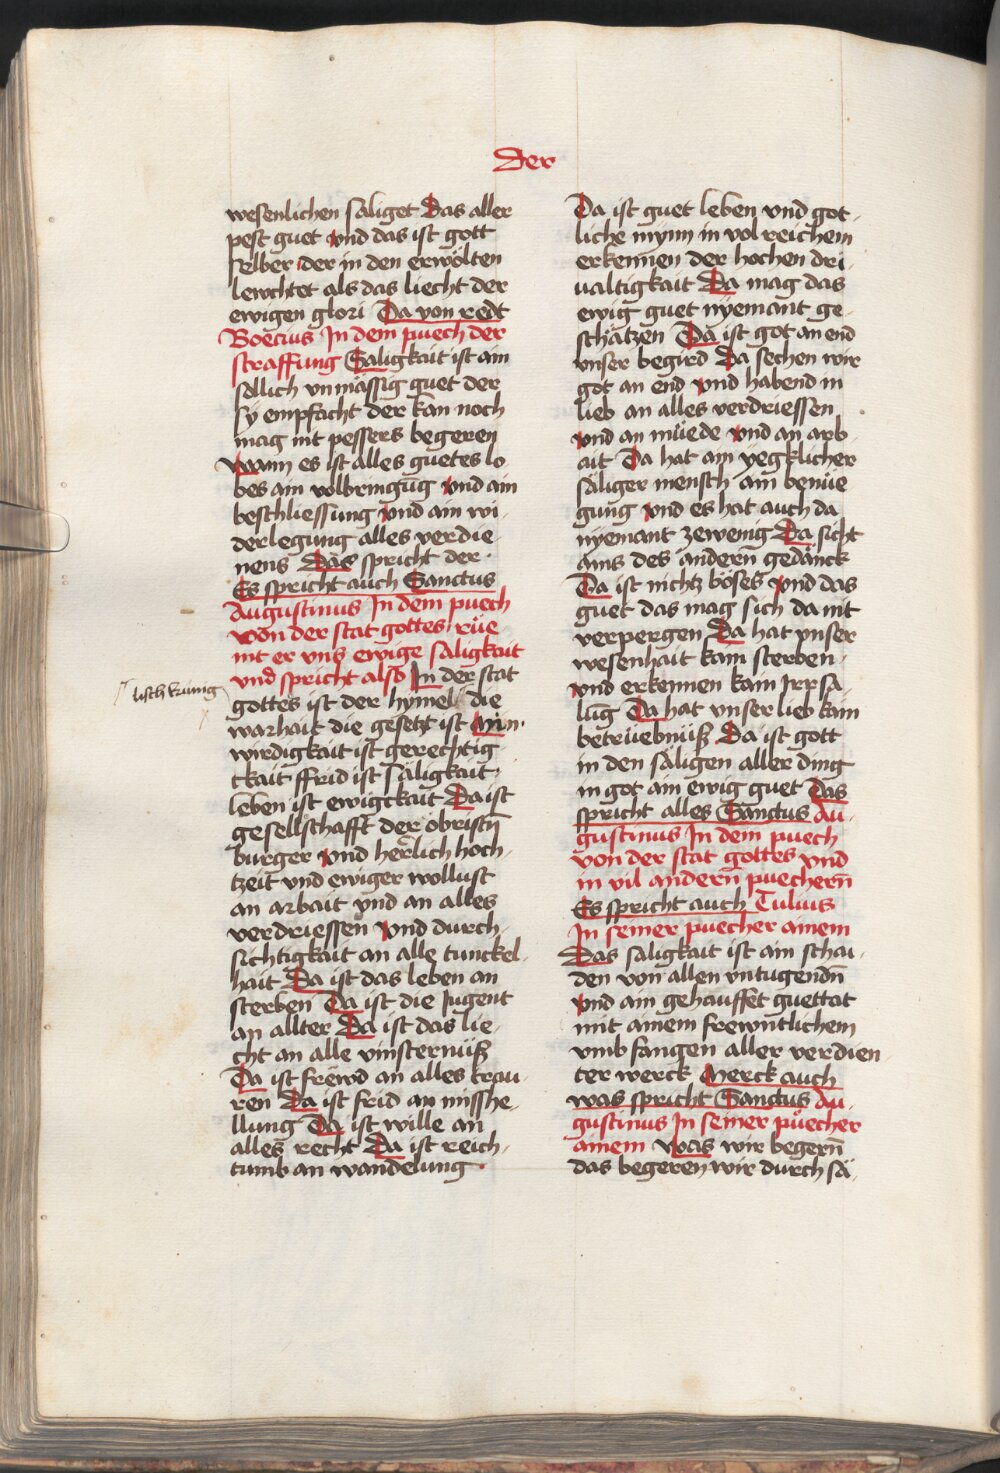 Der
wesenlichen saliget Das aller
pest guet und das ist gott
selber der in den erwölten
lewchtet als das liecht der
ewigen glori Da von redt
Boecius In dem puech der
straffung Saligkait ist ain
söllich unmässig guet der
sy empfacht der kan noch
mag nit pessers begeren
wann es ist alles guetes lo
bes ain volbringūg und ain
beschliessung und ain wi
derlegung alles verdie
nens Das spricht der
Es spricht auch Sanctus
Augustinus In dem puech
von der stat gottes rüe
mt er uns ewige saligkait
und spricht also In der stat
gottes ist der hymel die
warhait die gesetzt ist Min
wirdigkait ist gerechtig
tkait ffrid ist säligkait
leben ist ewigtkait Da ist
gesellschafft der obristn̄
burger und herrlich hoch
tzeit und ewiger wollust
an arbait und an alles
verdriessen und durch
sichtigkait an alle tunckel
hait Da ist das leben an
sterben Da ist die Jugent
an allter Da ist das lie
cht an alle vinsternüß
Da ist frewd an alles trau
ren Da ist frid an misshe
llung Da ist wille an
alles recht Da ist reich
tumb an wandelung
Da ist guet leben und got
liche mynn in volreichem
erkennen der hochen dri
ualtigkait Da mag das
ewig guet nyemant ge
schätzen Da ist got an end
unser begird Da sechen wir
got an end und habend in
lieb an alles verdriessen
und an müede und an arb
ait Da hat ain yegklicher
säliger mensch ain benüe
gung und es hat auch da
nyemant zewenig Da sicht
ains des andern̄ gedänck
Da ist nichtz böses und das
guet das mag sich da nit
verpergen Da hat unser
wesenhait kain sterben
und erkennen kain Irrsa
lūg Da hat unser lieb kain
betrüebnüß Da ist gott
in den säligen aller ding
in got ain ewig guet Das
spricht alles Sanctus Au
gustinus In dem puech
von der stat gottes und
in vil andern̄ puechern̄
Es spricht auch Tulius
In seiner puecher ainem
Das saligkait ist ain schai
den von allen untugendn̄
und ain gehauffet guettat
mit ainem frewntlichem
umb fangen aller verdien
ter werck Merck auch
was spricht Sanctus Au
gustinus In seiner püecher
ainem Was wir begern̄
das begeren wir durch sä